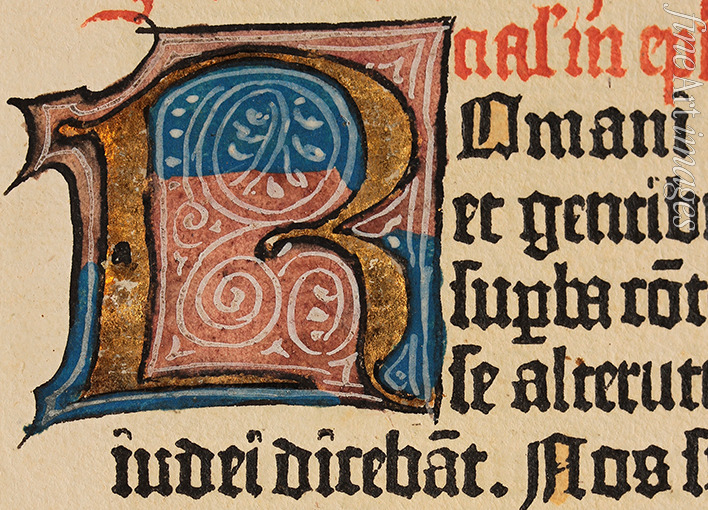 nal' in ep
ROmani
et gentibu
sup̱ba cōt
se alterut
iudei dicebāt. Nos s
fine Art images